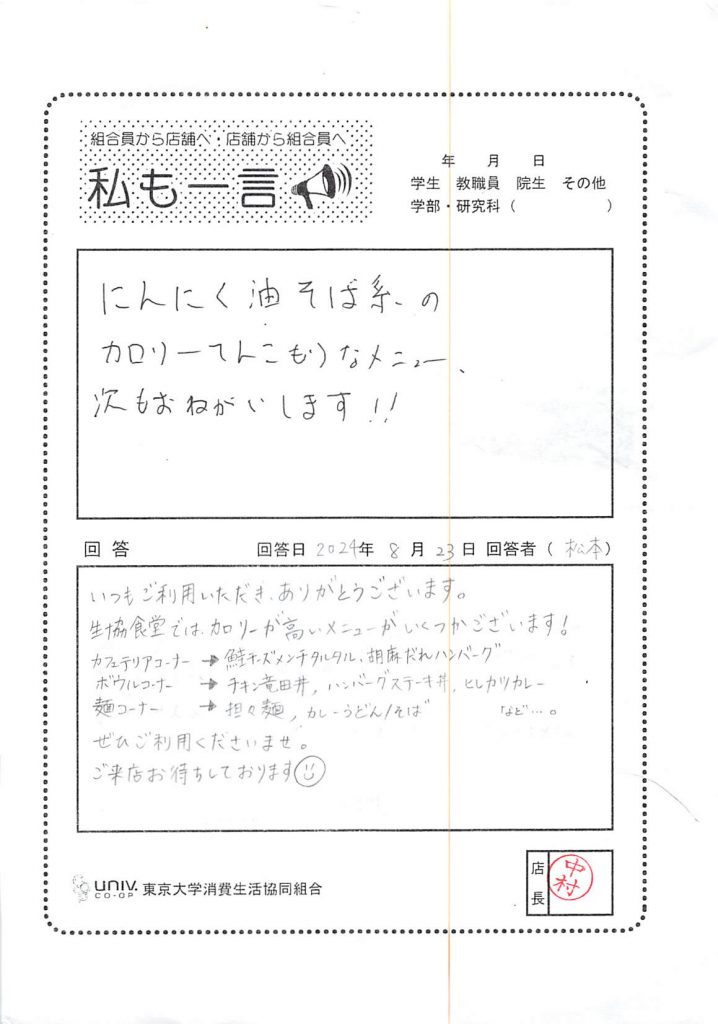 組合員から店舗へ・店舗から組合員へ
私も一言
年 月 日
学生 教職員 院生 その他
学部・研究科( )
にんにく油そば系の
カロリーてんこもりなメニュー、
次もおねがいします!!
回答 回答日 2024年 8月 23日 回答者( 松本)
いつもご利用いただき、ありがとうございます。
生協食堂では、カロリーが高いメニューがいくつかございます!
カフェテリアコーナー → 鮭チーズメンチタルタル、胡麻だれハンバーグ
ボウルコーナー → チキン竜田丼, ハンバーグステーキ丼, ヒレカツカレー
麺コーナー → 担々麺, カレーうどん/そば など…。
ぜひご利用くださいませ。
ご来店お待ちしております
UNIV. CO-OP 東京大学消費生活協同組合
店長 中村